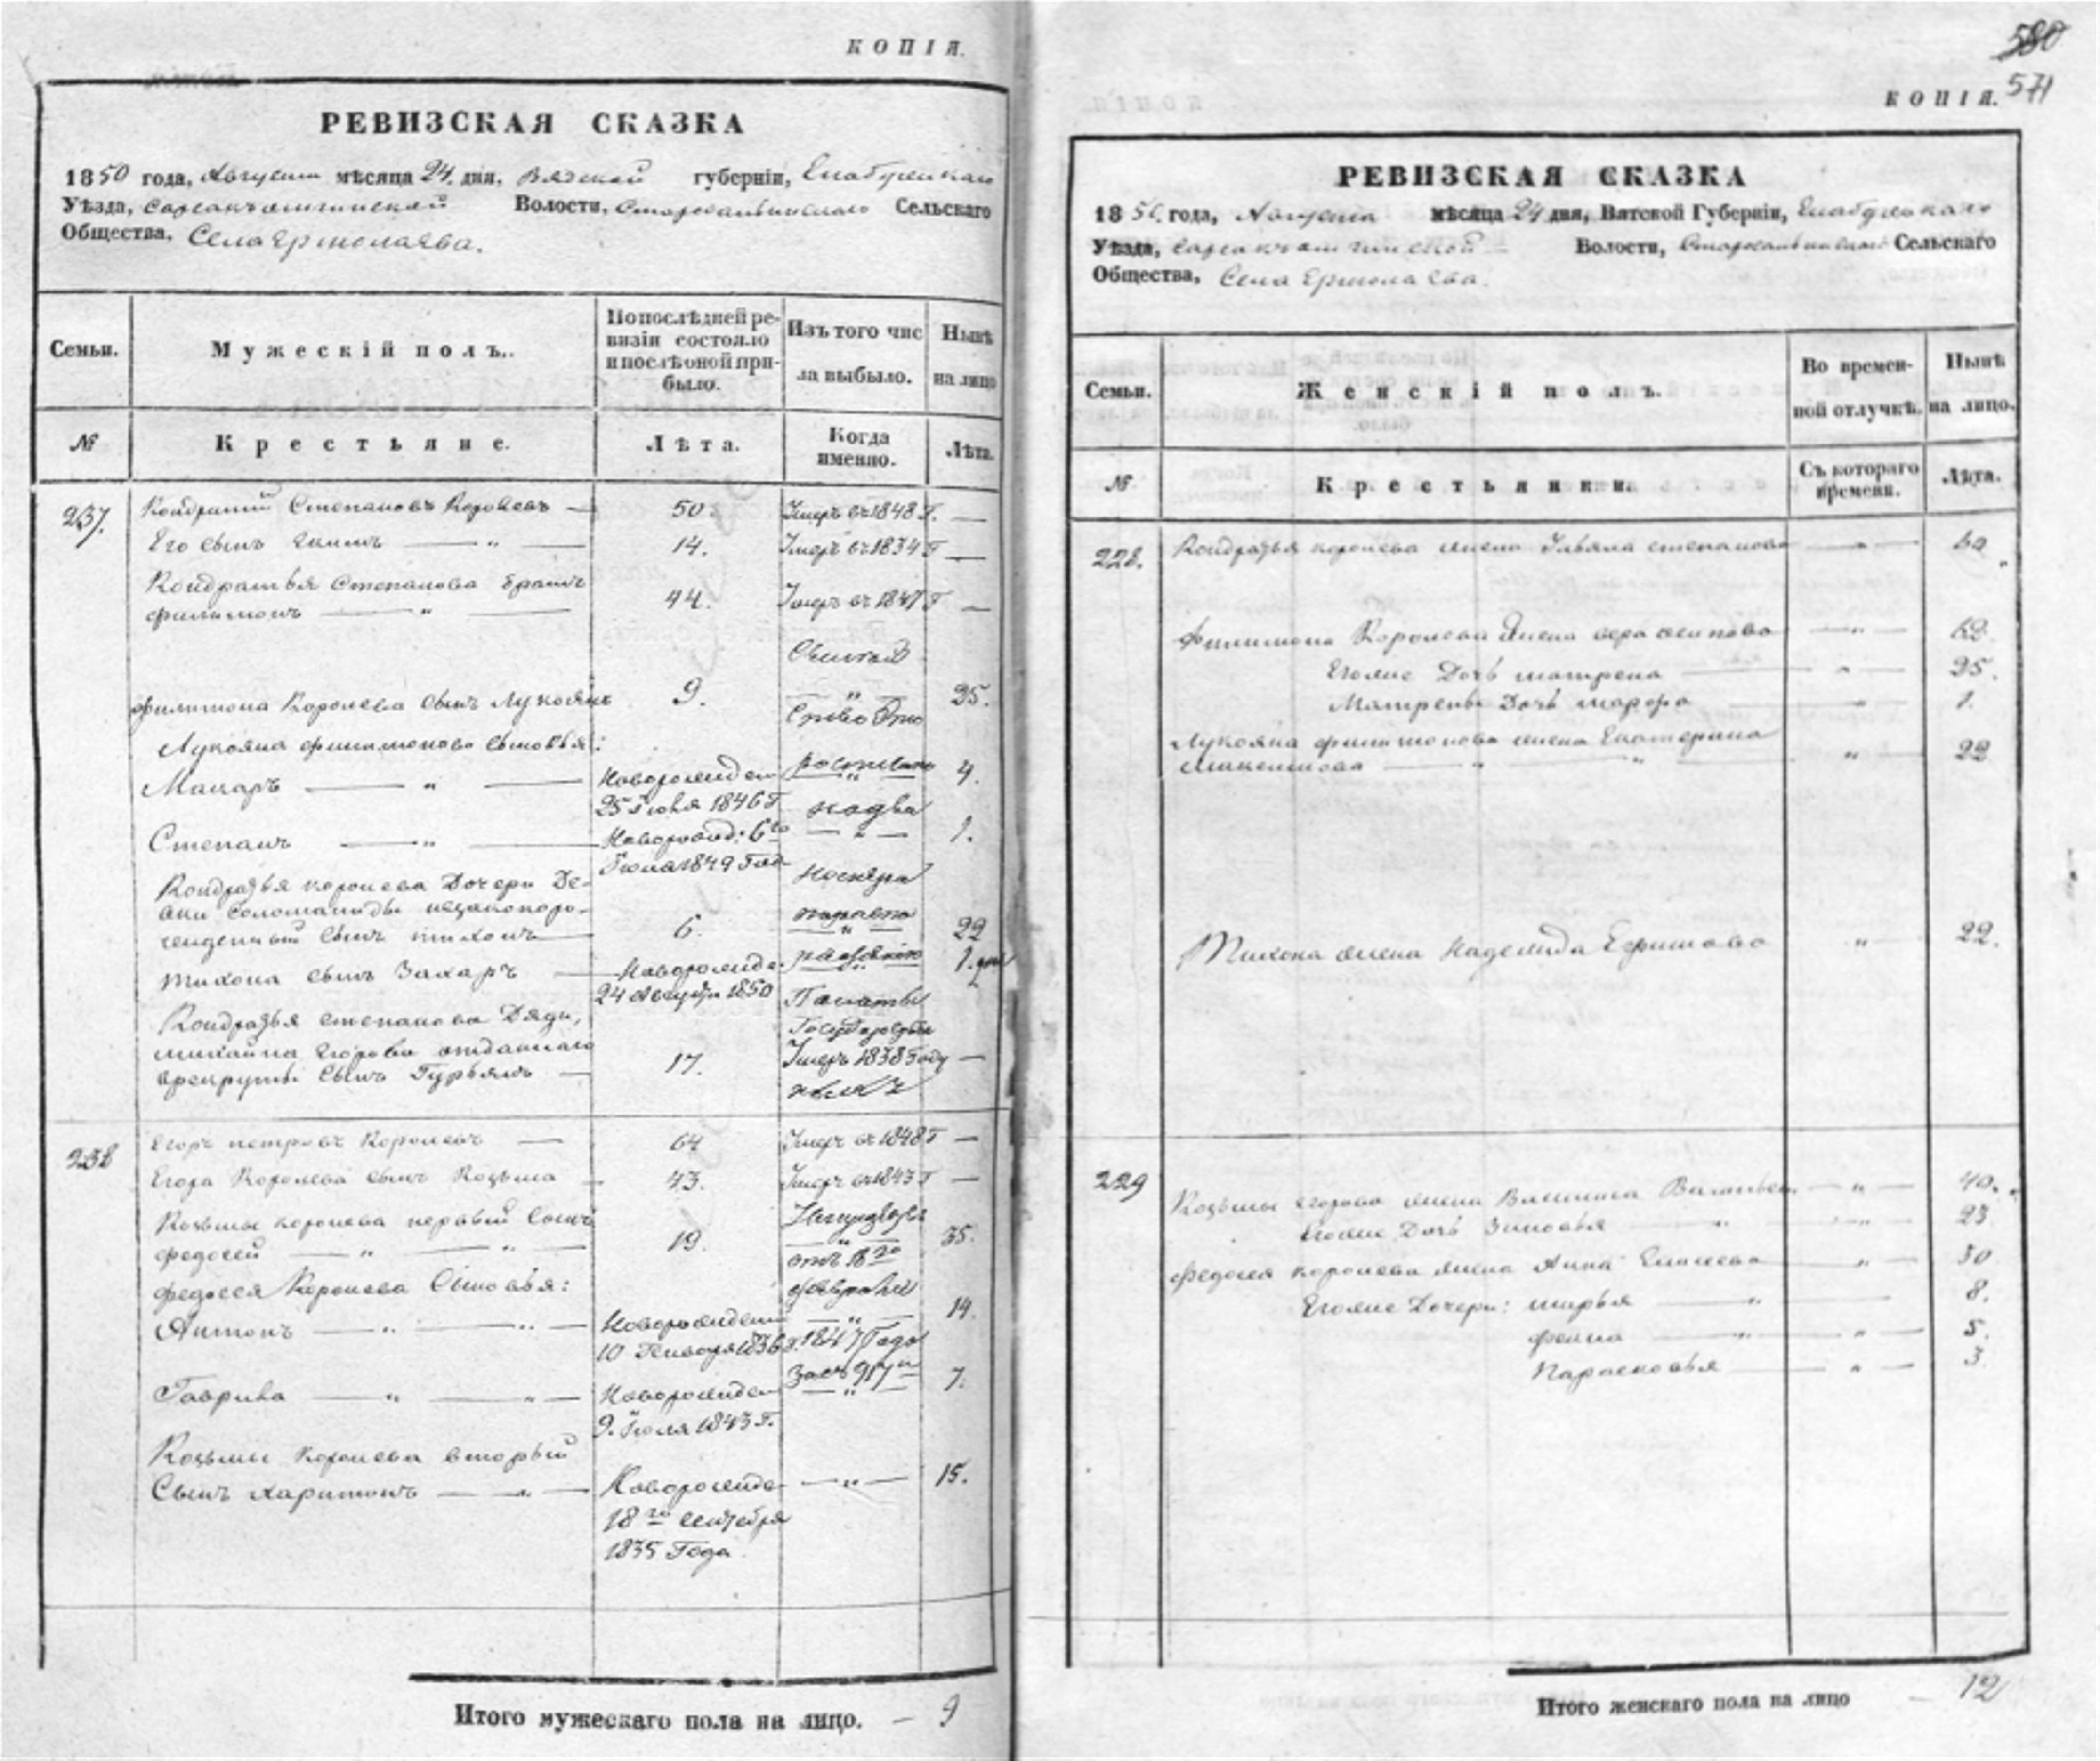 КОПІЯ.
РЕВИЗСКАЯ СКАЗКА
1850 года, Августа мѣсяца 24 дня, Вятской губерніи, Елабужскаго
Уѣзда, Волости, Сельскаго
Общества, Села Ермолаева.
Семьи.
Мужескій полъ.
По послѣдней ре-
визіи состояло
и послѣ оной при-
было.
Изъ того чис
ла выбыло.
Нынѣ
на лицо
№
Крестьяне.
Лѣта.
Когда
именно.
Лѣта.
237. Кондратій Степановъ Королевъ — 50. Умеръ въ 1848 Г. —
Его сынъ Екимъ — " — 14. Умеръ въ 1834 Г —
Кондратья Степанова братъ
Филимонъ — " — 44. Умеръ въ 1847 Г —
Филимона Королева сынъ Лукоянъ 9. " 25.
Лукояна Филимонова сыновья:
Макаръ — " — Новорожден 4.
25 1846 Г
Степанъ — " — Новорожд: 6го — " — 1.
Іюля 1849 Год
на два
Кондратья Королева Дочери Де-
вки Соломаниды незаконоро-
жденный сынъ Тихонъ — 6. " 22
Тихона сынъ Захаръ — Новорожде. 1. дня
24 Августа 1850
Палаты
Кондратья Степанова Дяди,
Михайла Егорова отданнаго
в рекруты сынъ Гурьянъ — 17. Умеръ 1838 Году —
238 Егоръ Петровъ Королевъ — 64 Умеръ въ 1848 Г —
Егора Королева сынъ Козьма — 43. Умеръ въ 1843 Г —
Козьмы Королева первый сынъ
Федосей — " — " — 19. " 35.
отъ 18го
февраля
Федосея Королева Сыновья:
Антонъ — " — " — Новорожденный — " — 14.
10 Генваря 1836 Г. 1847 Года
за № 917м
Гаврила — " — " — Новорожден — " — 7.
9. Іюля 1843 Г.
Козьмы Королева вторый
Сынъ Харитонъ — " — Новорожде — " — 15.
18го сентября
1835 Года
Итого мужескаго пола на лицо. — 9
580
571
КОПІЯ.
РЕВИЗСКАЯ СКАЗКА
1850 года, Августа мѣсяца 24 дня, Вятской Губерніи, Елабужскаго
Уѣзда, Волости, Сельскаго
Общества, Села Ермолаева.
Семьи.
Женскій полъ.
Во времен-
ной отлучкѣ.
Нынѣ
на лицо.
№
Крестьянки.
Съ котораго
времени.
Лѣта.
228. Кондратья Королева жена Татьяна Степанова — " — 60
Филимона Королева жена Вера Осипова — " — 62
Его же Дочь Матрена — " — 25.
Матрены Дочь Марфа — " — 1.
Лукояна Филимонова жена Екатерина
— " — " " 22
Тихона жена Надежда Ефимова " 22.
229 Козьмы Егорова жена Васильева — " — 40.
Его же Дочь Зиновья — " — " — 23
Федосея Королева жена Анна Елисеева — " — 30
Его же Дочери: Марья — " — 8.
Фекла — " — " — 5.
Парасковья — " — 3.
Итого женскаго пола на лицо — 12